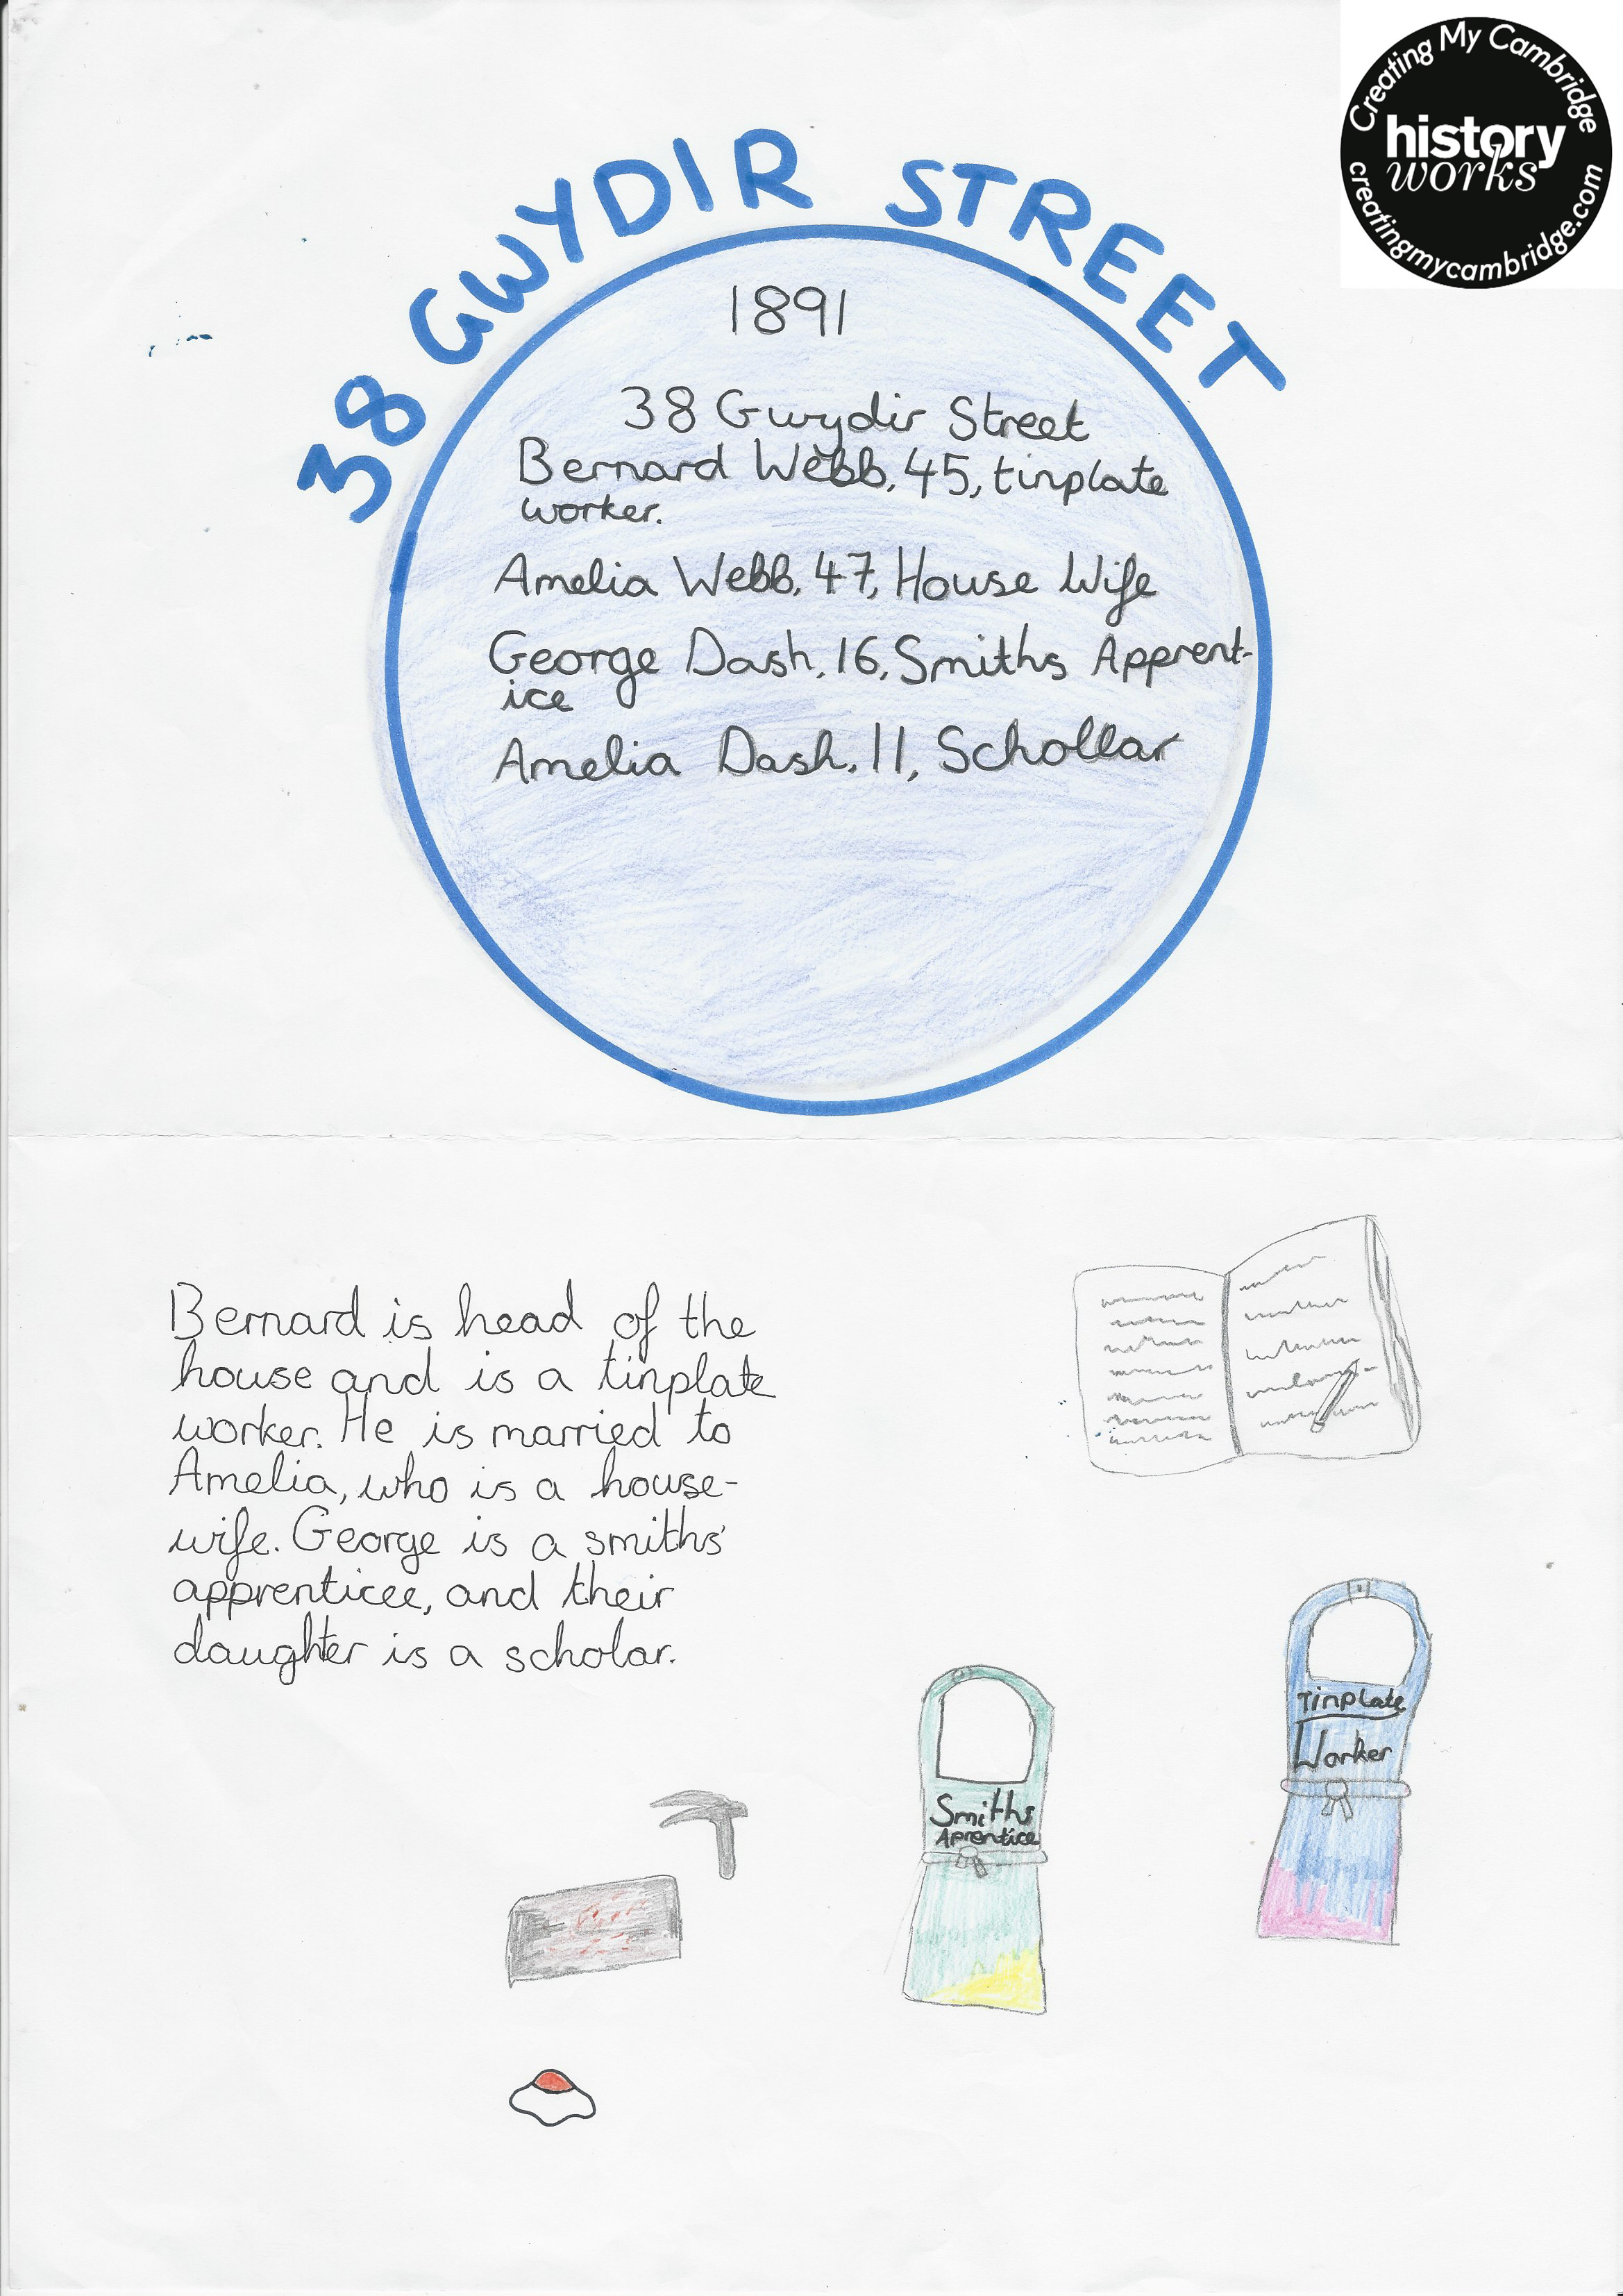 Creating My Cambridge
history
works
creatingmycambridge.com
38 GWYDIR STREET
1891
38 Gwydir Street
Bernard Webb, 45, tinplate
worker.
Amelia Webb, 47, House Wife
George Dash, 16, Smiths Apprent-
ice
Amelia Dash, 11, Schollar
Bernard is head of the
house and is a tinplate
worker. He is married to
Amelia, who is a house-
wife. George is a smiths'
apprenticee, and their
daughter is a scholar.
Tinplate
Worker
Smiths
Aprentice